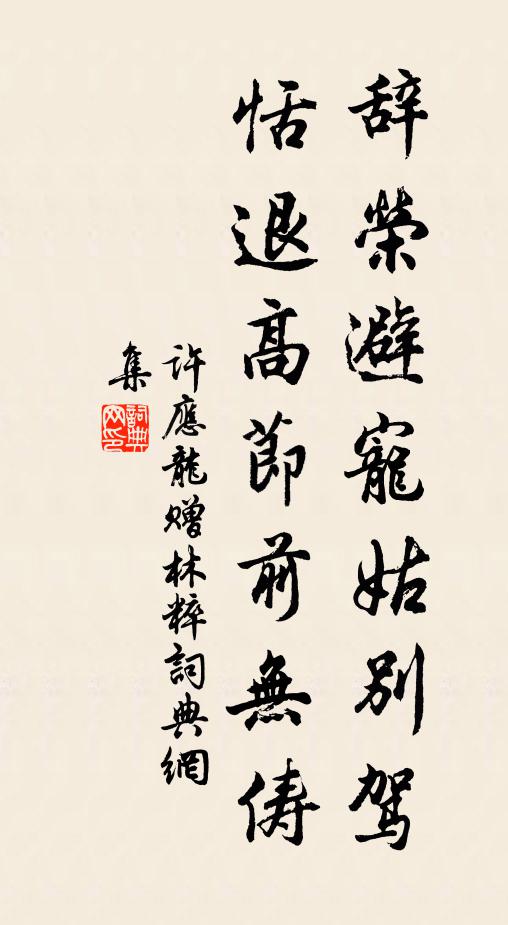 辞榮避寵姑別駕
恬退高節前無儔
許應龍贈林粹詞典網
集
詞典
网印